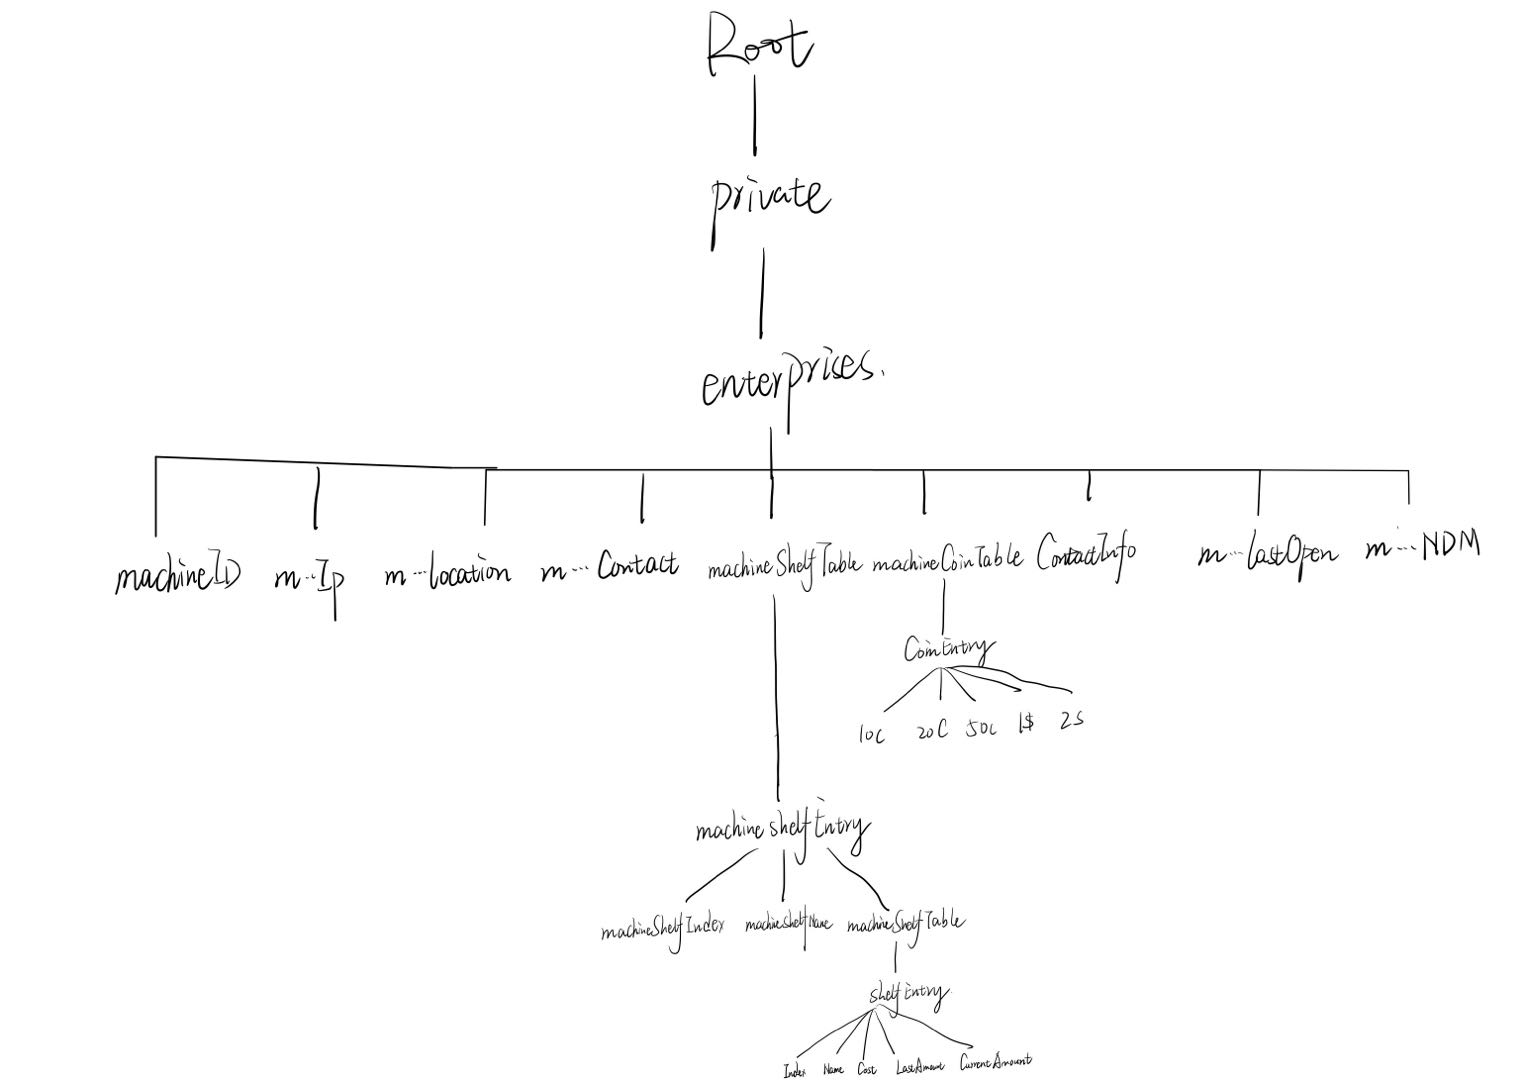 Root
private
enterprises.
machineID m...Ip m...location m...Contact machineShelfTable machineCoinTable ContactInfo m...lastOpen m...NDM
CoinEntry
10c 20C 50c 1$ 2S
machineshelfEntry
machineShelfIndex machineShelfName machineShelfTable
shelfEntry
Index Name Cost LastAmount CurrentAmount